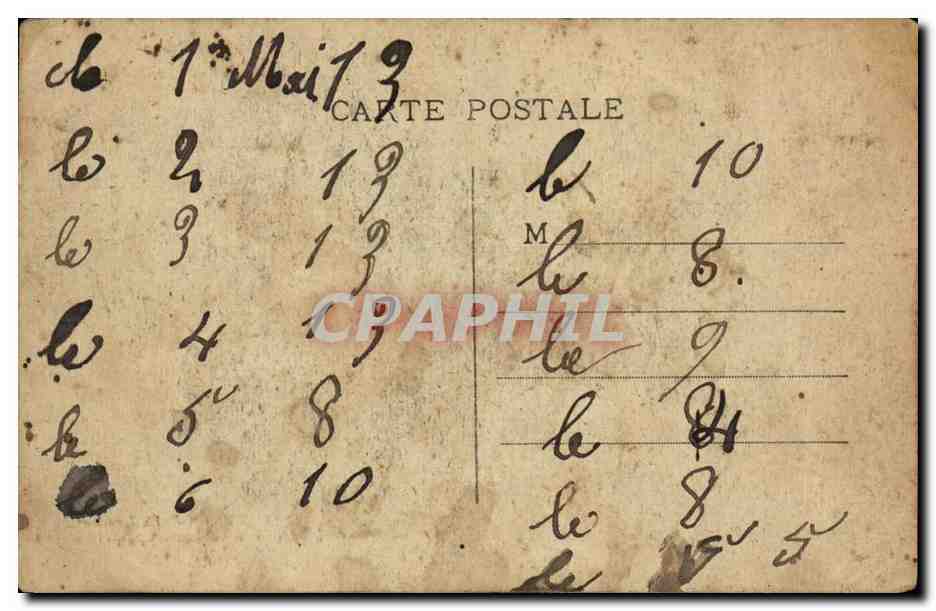 le 1er Mai 13
CARTE POSTALE
le 2 13
le 3 13
le 4 13
le 5 8
le 6 10
le 10
M
le 8.
le 9
le 4
le 8
le 5 5
CPAPHIL